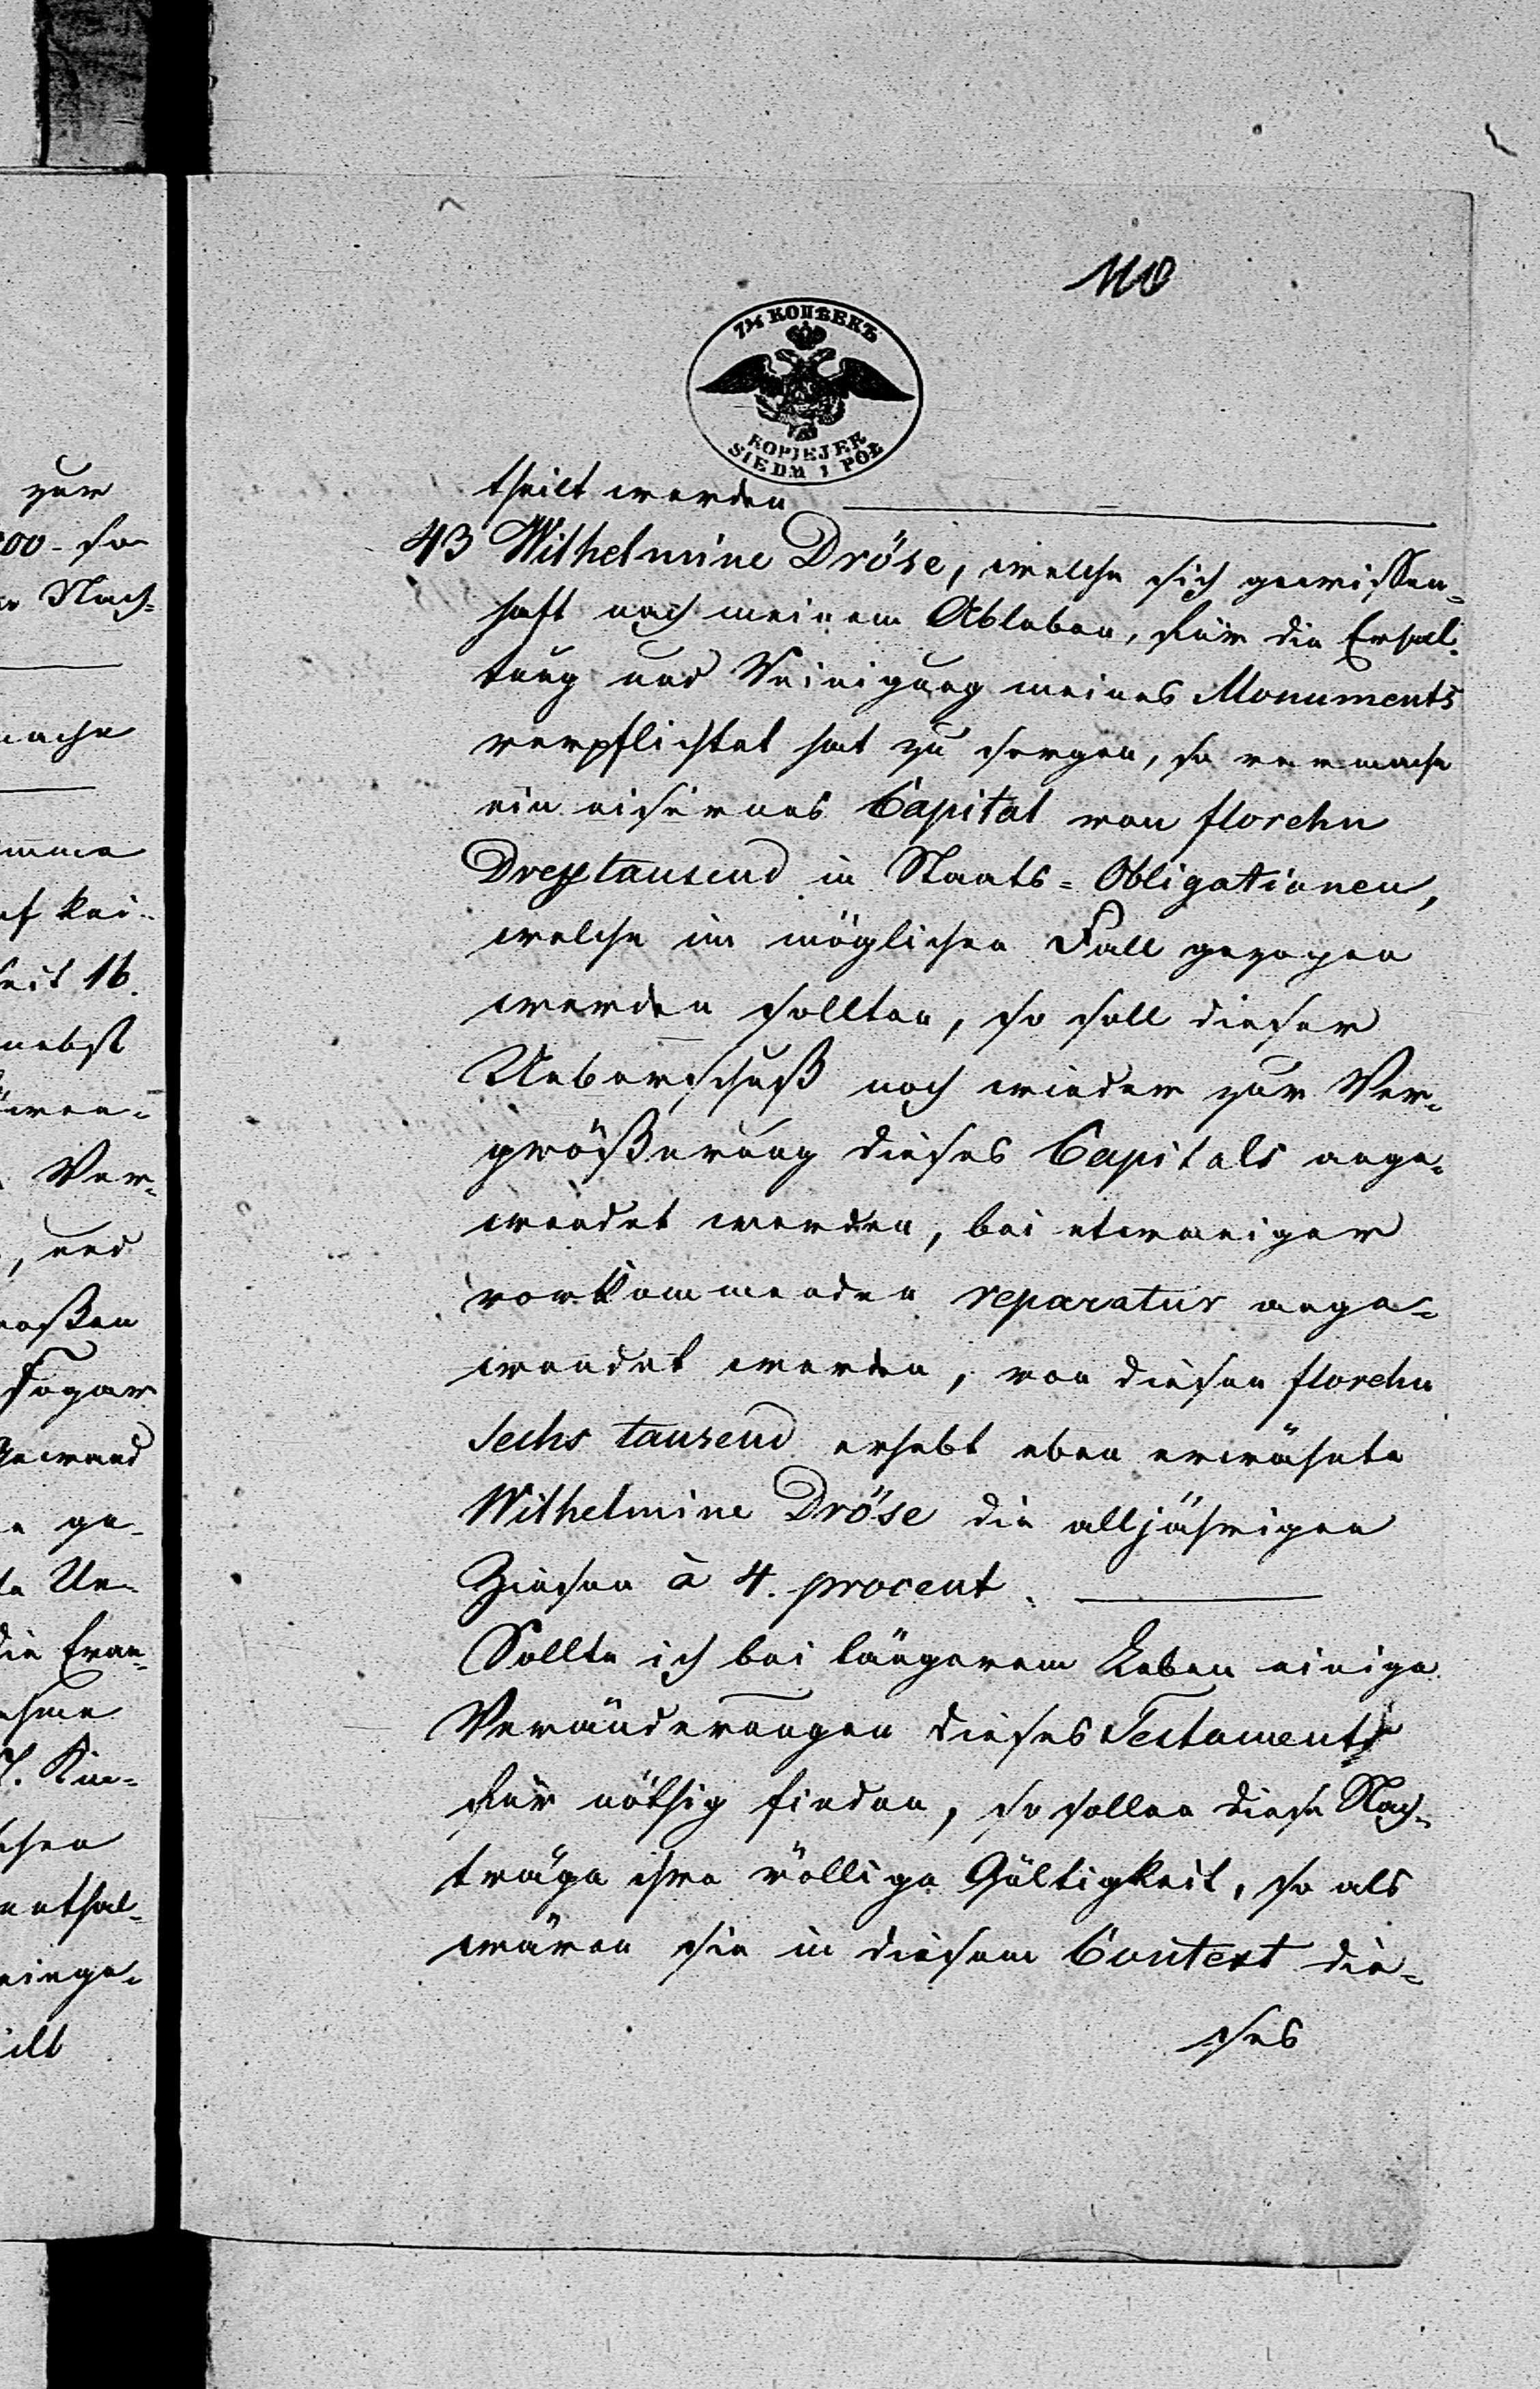 110
7½ КОПѢЕКЪ
KOPIEJEK
SIEDM I PÓŁ
theilt werden
43 Wilhelmine Dröse, welche sich gewissen-
haft nach meinem Ableben, für die Erhal-
tung und Reinigung meines Monuments
verpflichtet hat zu sorgen, so vermache
ein eisernes Capital von florehn
Dreytausend in Staats-Obligationen,
welche im möglichen Fall gezogen
werden sollten, so soll dieser
Ueberschuß noch wieder zur Ver-
größerung dieses Capitals ange-
wendet werden, bei etwaniger
vorkommenden reparatur ange-
wendet werden, von diesen florehn
Sechs tausend erhebt eben erwähnte
Wilhelmine Dröse die alljährigen
Zinsen à 4. procent.
Sollte ich bei längerem Leben einige
Veränderungen dieses Testaments
für nöthig finden, so sollen diese Nach-
träge ihre völlige Gültigkeit, so als
wären sie in diesem Context die-
ses
zur
00 - so
Nach-
mache
f kei-
16.
nebst
Ver-
, und
großen
sogar
Gewand
ge-
Un-
die
enthal-
einge-